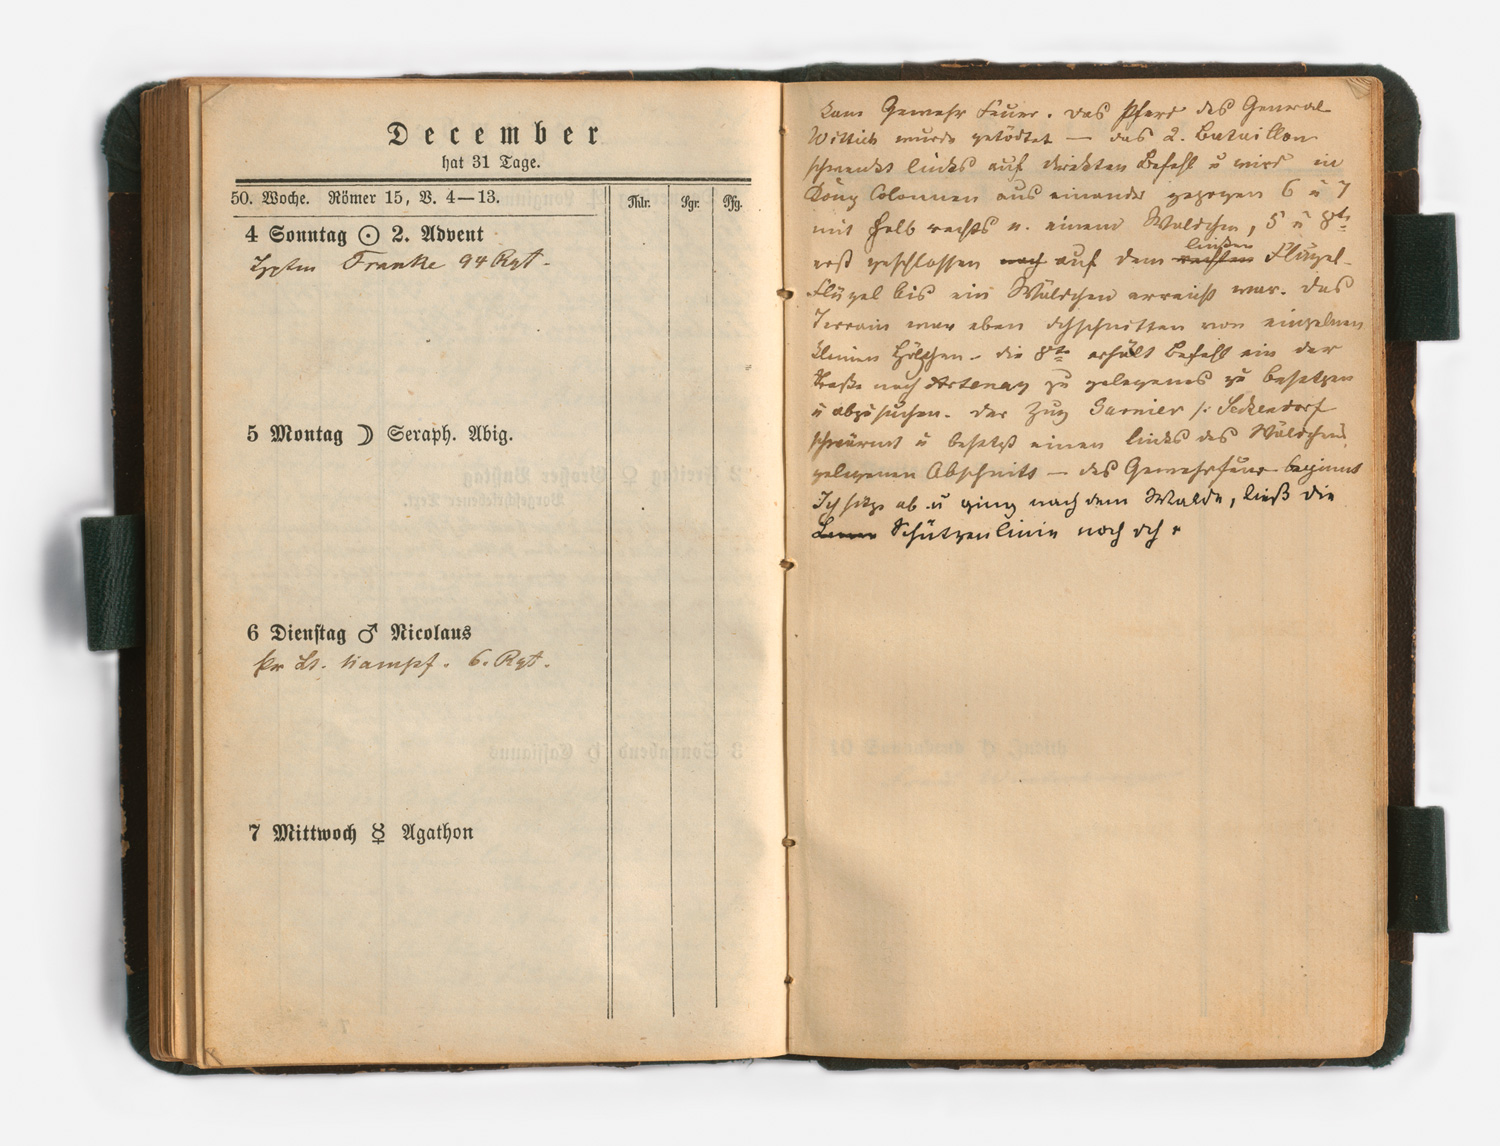 December
hat 31 Tage.
50. Woche. Römer 15, V. 4—13.
Thlr. Sgr. Pfg.
4 Sonntag ☉ 2. Advent
Hptm Franke 94 Rgt.
5 Montag ☽ Seraph. Abig.
6 Dienstag ♂ Nicolaus
Pr Lt. Kampf. 6. Rgt.
7 Mittwoch ☿ Agathon
kam Gewehr Feuer. Das Pferd des General
Wittich wurde getödtet — das 2. Bataillon
schwenkt links auf direkten Befehl u wird in
Comp Colonnen aus einander gezogen 6 u 7
mit halb rechts n. einem Wäldchen, 5 u 8te
erst geschlossen noch auf dem rechten linken Flügel-
Flügel bis ein Wäldchen erreicht war. Das
Terrain war eben dchschnitten von einzelnen
kleinen Hölzchen - die 8te erhält Befehl ein der
Straße nach Artenay zu gelegenes zu besetzen
u abzusuchen. Der Zug Garnier /: Seckendorf
schwärmt u besetzt einen links des Wäldchens
gelegenen Abschnitt — das Gewehrfeuer beginnt
Ich sitze ab u ging nach dem Walde, ließ die
Schützenlinie noch dch